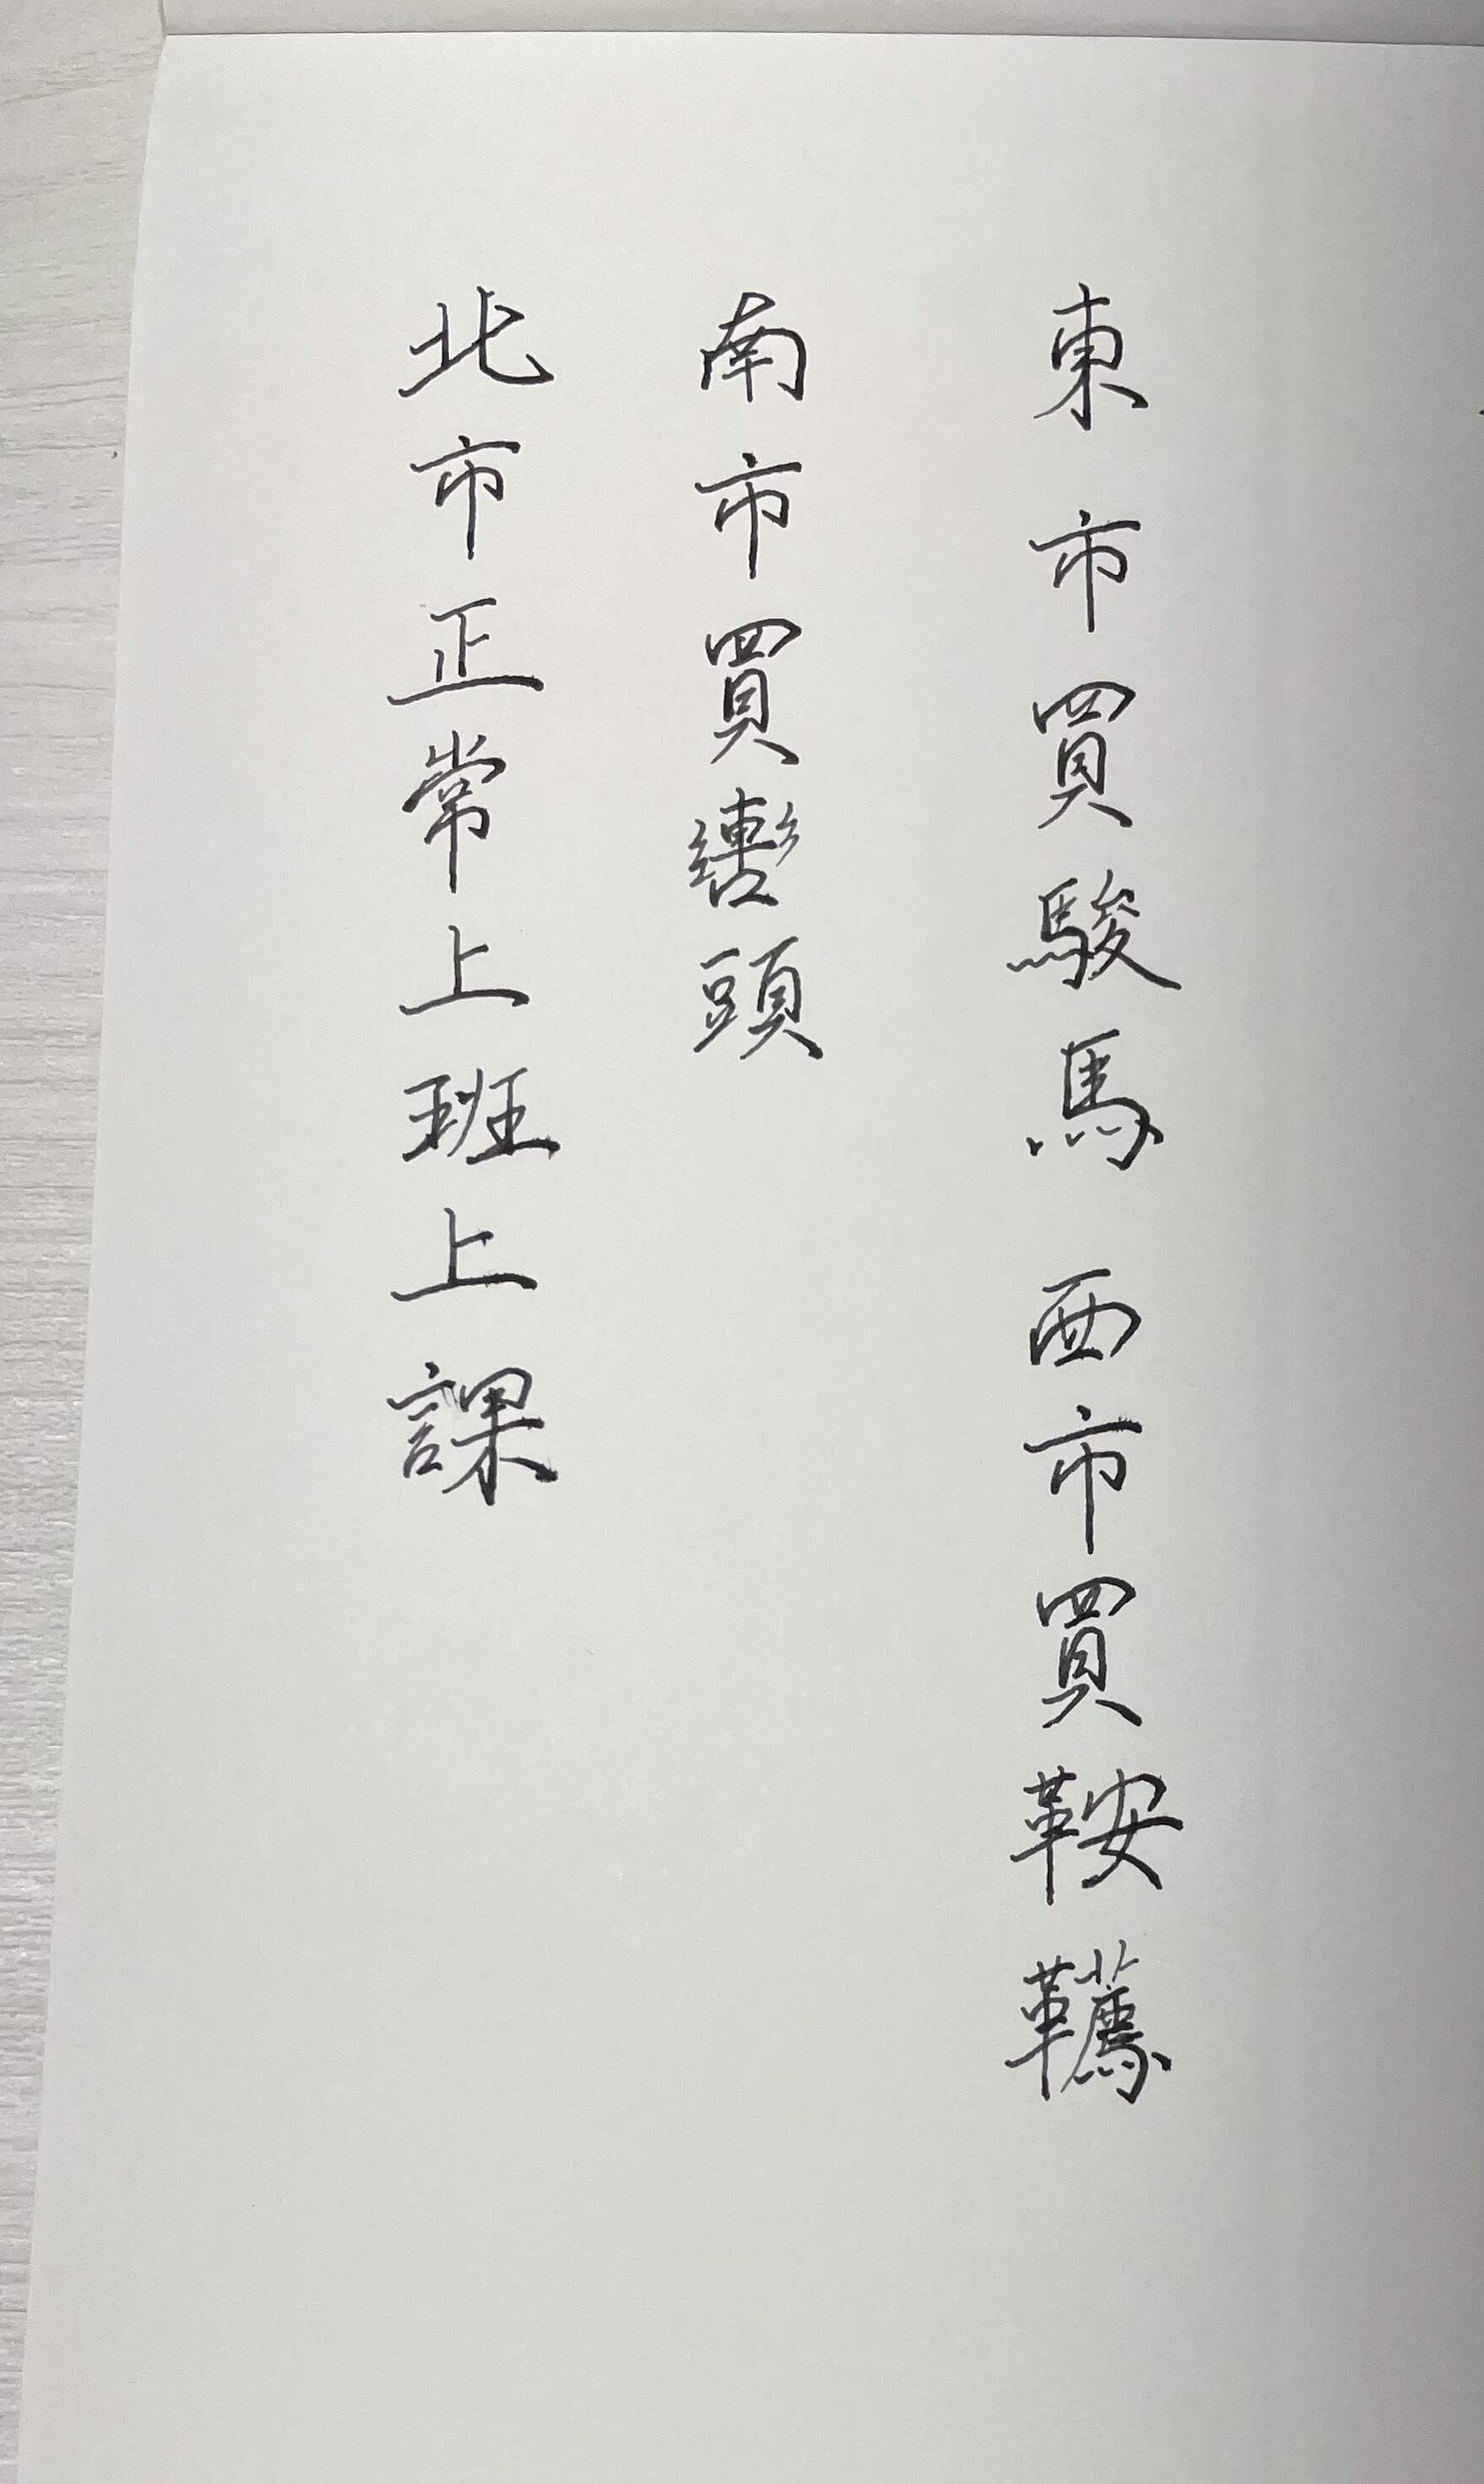 東市買駿馬 西市買鞍韉
南市買轡頭
北市正常上班上課